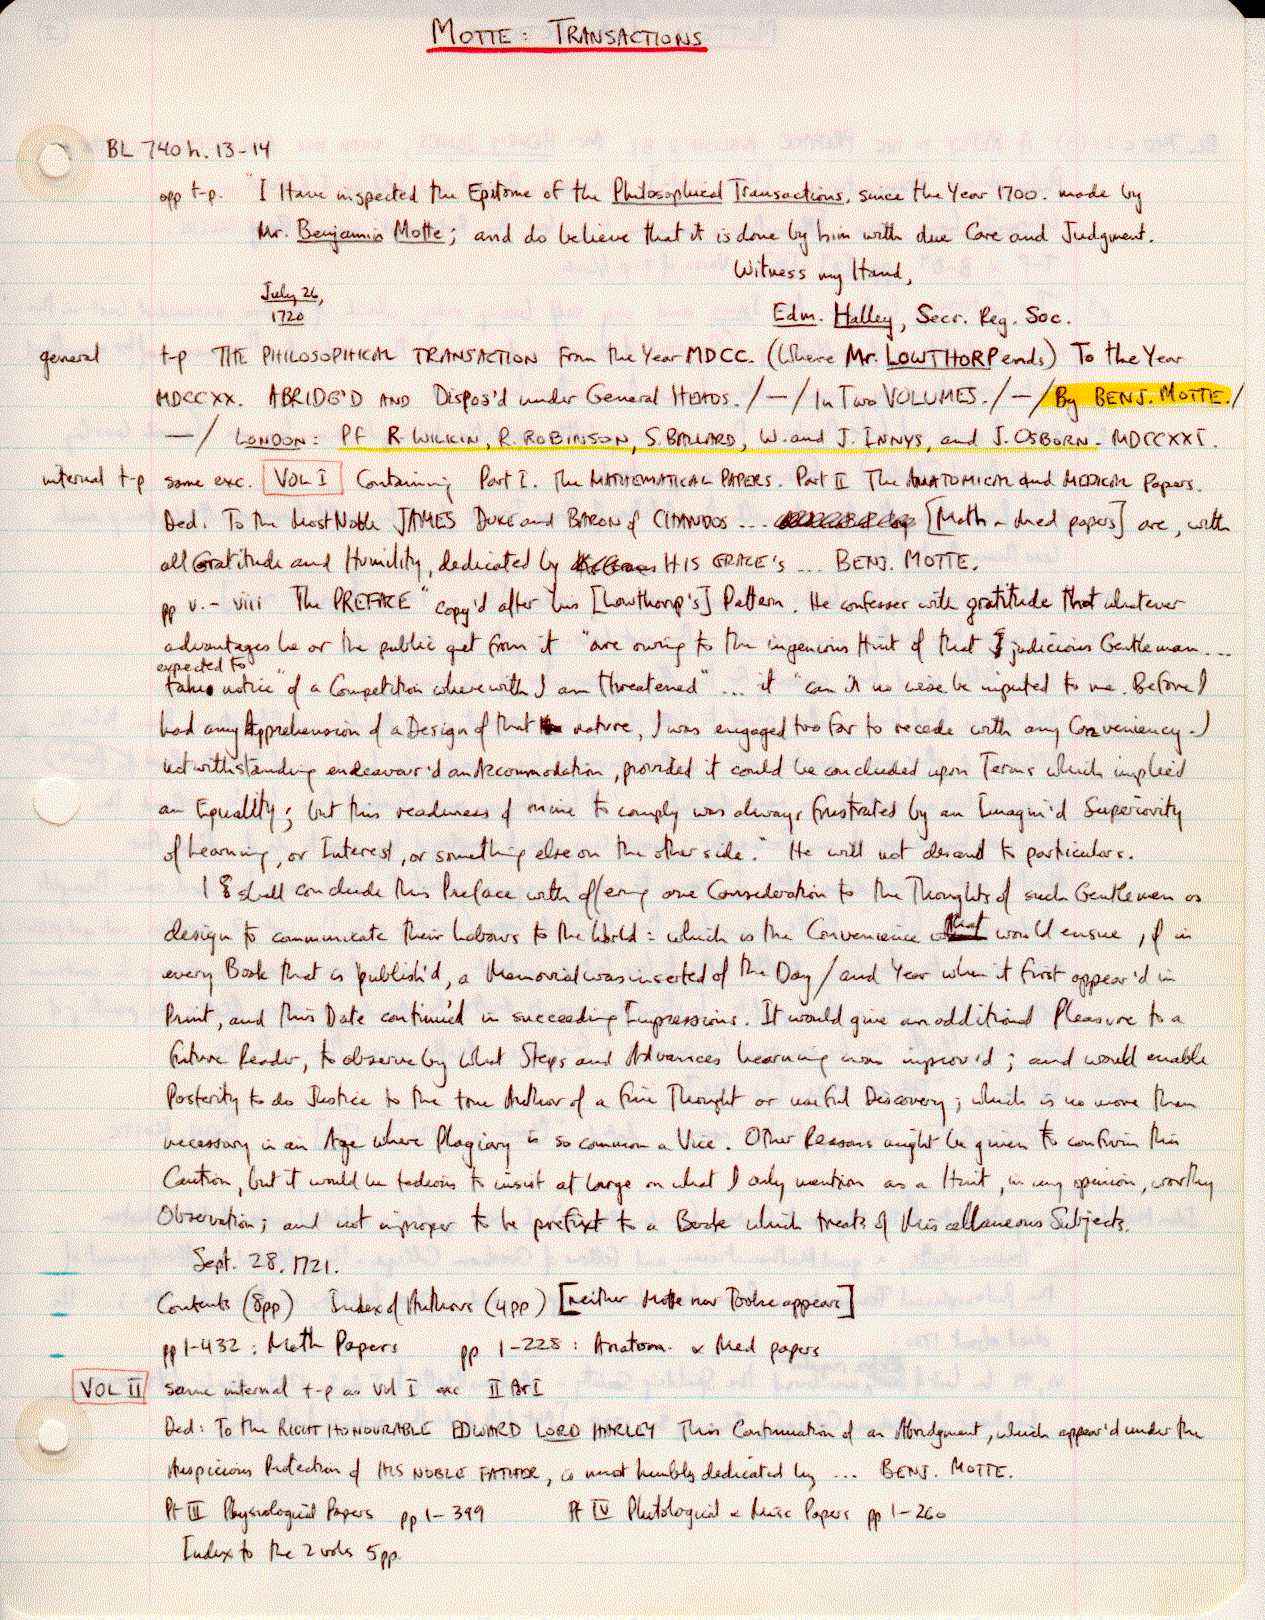 MOTTE: TRANSACTIONS
BL 740 h. 13-14
opp t-p. "I Have inspected the Epitome of the Philosophical Transactions, since the Year 1700. made by
Mr. Benjamin Motte; and do believe that it is done by him with due Care and Judgment.
Witness my Hand,
July 26,
1720
Edm. Halley, Secr. Reg. Soc.
general t-p THE PHILOSOPHICAL TRANSACTION From the Year MDCC. (Where Mr. LOWTHORP ends) To the Year
MDCCXX. ABRIDG'D AND Dispos'd under General HEADS. /—/ In Two VOLUMES. /—/ By BENJ. MOTTE. /
—/ LONDON: Pf R. WILKIN, R. ROBINSON, S. BALLARD, W. and J. INNYS, and J. OSBORN- MDCCXXI.
internal t-p same exc. VOL I Containing Part I. The MATHEMATICAL PAPERS. Part II The ANATOMICAL and MEDICAL Papers.
Ded. To the Most Noble JAMES DUKE and BARON of CHANDOS ... [Math ~ Med papers] are, with
all Gratitude and Humility, dedicated by HIS GRACE's ... BENJ. MOTTE.
pp v. - viii The PREFACE "copy'd after his [Lowthorp's] Pattern. He confesses with gratitude that whatever
advantages he or the public get from it "are owing to the ingenious Hint of that judicious Gentleman ...
expected to
take notice "of a Competition wherewith I am threatened" ... it "can in no wise be imputed to me. Before I
had any Apprehension of a Design of that nature, I was engaged too far to recede with any Conveniency. I
notwithstanding endeavour'd an Accommodation, provided it could be concluded upon Terms which implied
an Equality; but this readiness of mine to comply was always frustrated by an Imagin'd Superiority
of Learning, or Interest, or something else on the other side." He will not descend to particulars.
I shall conclude this Preface with offering one Consideration to the Thoughts of such Gentlemen as
design to communicate their Labours to the World: which is the Convenience that would ensue, if in
every Book that is publish'd, a Memorial was inserted of the Day / and Year when it first appear'd in
Print, and this Date continu'd in succeeding Impressions. It would give an additional Pleasure to a
future Reader, to observe by what Steps and Advances Learning was improv'd; and would enable
Posterity to do Justice to the true Author of a fine Thought or useful Discovery; which is no more than
necessary in an Age where Plagiary is so common a Vice. Other Reasons might be given to confirm this
Caution, but it would be tedious to insist at large on what I only mention as a Hint, in my opinion, worthy
Observation; and not improper to be prefixt to a Book which treats of Miscellaneous Subjects.
Sept. 28. 1721.
Contents (8pp) Index of Authors (4pp) [neither Motte nor Tooke appears]
pp 1-432: Math Papers pp 1-228: Anatom. & Med papers
VOL II same internal t-p as vol I exc II for I
Ded: To the RIGHT HONOURABLE EDWARD LORD HARLEY This Continuation of an Abridgment, which appear'd under the
Auspicious Protection of HIS NOBLE FATHER, is most humbly dedicated by ... BENJ. MOTTE.
Pt III Physiological Papers pp 1-399 Pt IV Philological & Misc Papers pp 1-260
Index to the 2 vols 5pp.